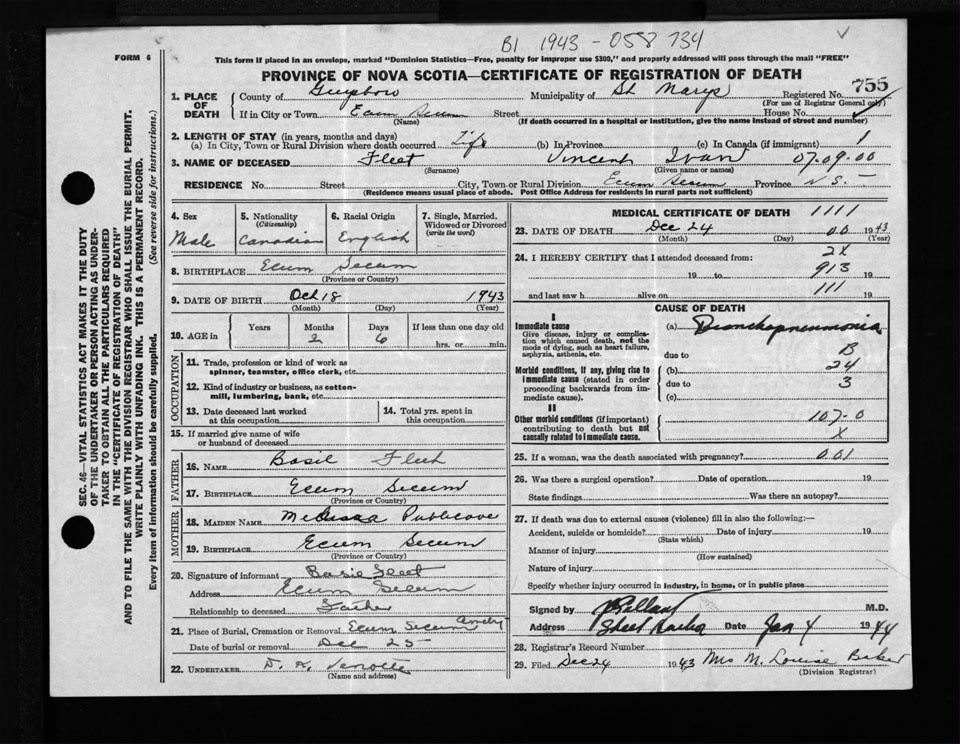 B1 1943 - 058 734
FORM 6
This form if placed in an envelope, marked "Dominion Statistics—Free, penalty for improper use $300," and properly addressed will pass through the mail "FREE"
PROVINCE OF NOVA SCOTIA—CERTIFICATE OF REGISTRATION OF DEATH
755
1. PLACE OF DEATH
County of Guysboro Municipality of St Marys Registered No.
(For use of Registrar General only)
If in City or Town Ecum Secum Street House No.
(Name) (If death occurred in a hospital or institution, give the name instead of street and number)
2. LENGTH OF STAY (in years, months and days)
(a) In City, Town or Rural Division where death occurred Life (b) In Province (c) In Canada (if immigrant) 1
3. NAME OF DECEASED Fleet Vincent Ivan 07.09.00
(Surname) (Given name or names)
RESIDENCE No. Street City, Town or Rural Division Ecum Secum Province N.S.
(Residence means usual place of abode. Post Office Address for residents in rural parts not sufficient)
4. Sex 5. Nationality (Citizenship) 6. Racial Origin 7. Single, Married, Widowed or Divorced (write the word)
Male Canadian English
8. BIRTHPLACE Ecum Secum
(Province or Country)
9. DATE OF BIRTH Oct 18 1943
(Month) (Day) (Year)
10. AGE in Years Months Days If less than one day old
2 6 hrs. or min.
OCCUPATION
11. Trade, profession or kind of work as spinner, teamster, office clerk, etc.
12. Kind of industry or business, as cotton-mill, lumbering, bank, etc.
13. Date deceased last worked at this occupation
14. Total yrs. spent in this occupation
15. If married give name of wife or husband of deceased
FATHER
16. NAME Basil Fleet
17. BIRTHPLACE Ecum Secum
(Province or Country)
MOTHER
18. MAIDEN NAME Publicove
19. BIRTHPLACE Ecum Secum
(Province or Country)
20. Signature of informant Basil Fleet
Address Ecum Secum
Relationship to deceased Father
21. Place of Burial, Cremation or Removal Ecum Secum
Date of burial or removal Dec 25
22. UNDERTAKER
(Name and address)
MEDICAL CERTIFICATE OF DEATH 1111
23. DATE OF DEATH Dec 24 00 1943
(Month) (Day) (Year)
24. I HEREBY CERTIFY that I attended deceased from:
2X
19 to 913 19
and last saw h alive on 111 19
CAUSE OF DEATH
I
Immediate cause
Give disease, injury or complication which caused death, not the mode of dying, such as heart failure, asphyxia, asthenia, etc.
(a) Bronchopneumonia
due to B
Morbid conditions, if any, giving rise to immediate cause (stated in order proceeding backwards from immediate cause).
(b) 24
due to 3
(c)
II
Other morbid conditions (if important) contributing to death but not causally related to immediate cause.
107-0
X
25. If a woman, was the death associated with pregnancy? 001
26. Was there a surgical operation? Date of operation 19
State findings Was there an autopsy?
27. If death was due to external causes (violence) fill in also the following:—
Accident, suicide or homicide? Date of injury 19
(State which)
Manner of injury
(How sustained)
Nature of injury
Specify whether injury occurred in industry, in home, or in public place
Signed by M.D.
Address Sheet Harbor Date Jan 4 1944
28. Registrar's Record Number
29. Filed Dec 24 1943 Mrs M. Louise Baker
(Division Registrar)
SEC. 46—VITAL STATISTICS ACT MAKES IT THE DUTY
OF THE UNDERTAKER OR PERSON ACTING AS UNDER-
TAKER TO OBTAIN ALL THE PARTICULARS REQUIRED
IN THE "CERTIFICATE OF REGISTRATION OF DEATH"
AND TO FILE THE SAME WITH THE DIVISION REGISTRAR WHO SHALL ISSUE THE BURIAL PERMIT.
WRITE PLAINLY WITH UNFADING INK. THIS IS A PERMANENT RECORD.
Every item of information should be carefully supplied. (See reverse side for instructions.)